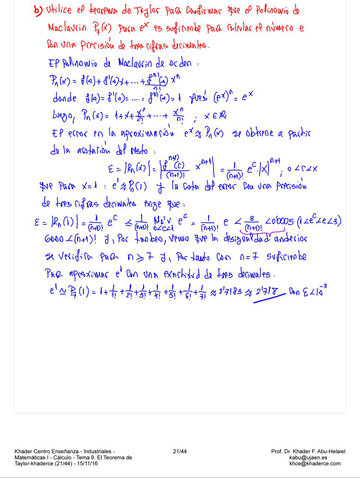 b) Utilice el teorema de Taylor para confirmar que el Polinomio de
Maclaurin P₇(x) para eˣ es suficiente para calcular el número e
con una precisión de tres cifras decimales.
El Polinomio de Maclaurin de orden:
Pₙ(x) = f(0) + f'(0)x + ... + fⁿ(0)/n! xⁿ
donde f(0) = f'(0) = .... fⁿ(0) = 1 pues (eˣ)ⁿ = eˣ
Luego, Pₙ(x) = 1 + x + x²/2! + ... + xⁿ/n! ; x ∈ R
El error en la aproximación eˣ ≈ Pₙ(x) se obtiene a partir
de la acotación del resto:
ε = |Rₙ(x)| = |f⁽ⁿ⁺¹⁾(c)/(n+1)! xⁿ⁺¹| = 1/(n+1)! eᶜ |x|ⁿ⁺¹ ; 0<c<x
que para x=1 : e¹ ≈ Pₙ(1) y la cota del error con una precisión
de tres cifras decimales exige que:
ε = |Rₙ(1)| = 1/(n+1)! eᶜ ≤ 1/(n+1)! Máx 0≤c≤1 eᶜ = 1/(n+1)! e < 3/(n+1)! < 0'0005 (1<eᶜ<e<3)
6000 < (n+1)! y, por tanteo, vemos que la desigualdad anterior
se verifica para n ≥ 7 y, por tanto con n=7 suficiente
para aproximar e¹ con una exactitud de tres decimales.
e¹ ≈ P₇(1) = 1 + 1/1! + 1/2! + 1/3! + 1/4! + 1/5! + 1/6! + 1/7! ≈ 2'7183 ≈ 2'718 con ε<10⁻³
Khader Centro Enseñanza - Industriales -
Matemáticas I - Cálculo - Tema 9. El Teorema de
Taylor-khaderce (21/44) - 15/11/16
21/44
Prof. Dr. Khader F. Abu-Helaiel
kabu@ujaen.es
khce@khaderce.com